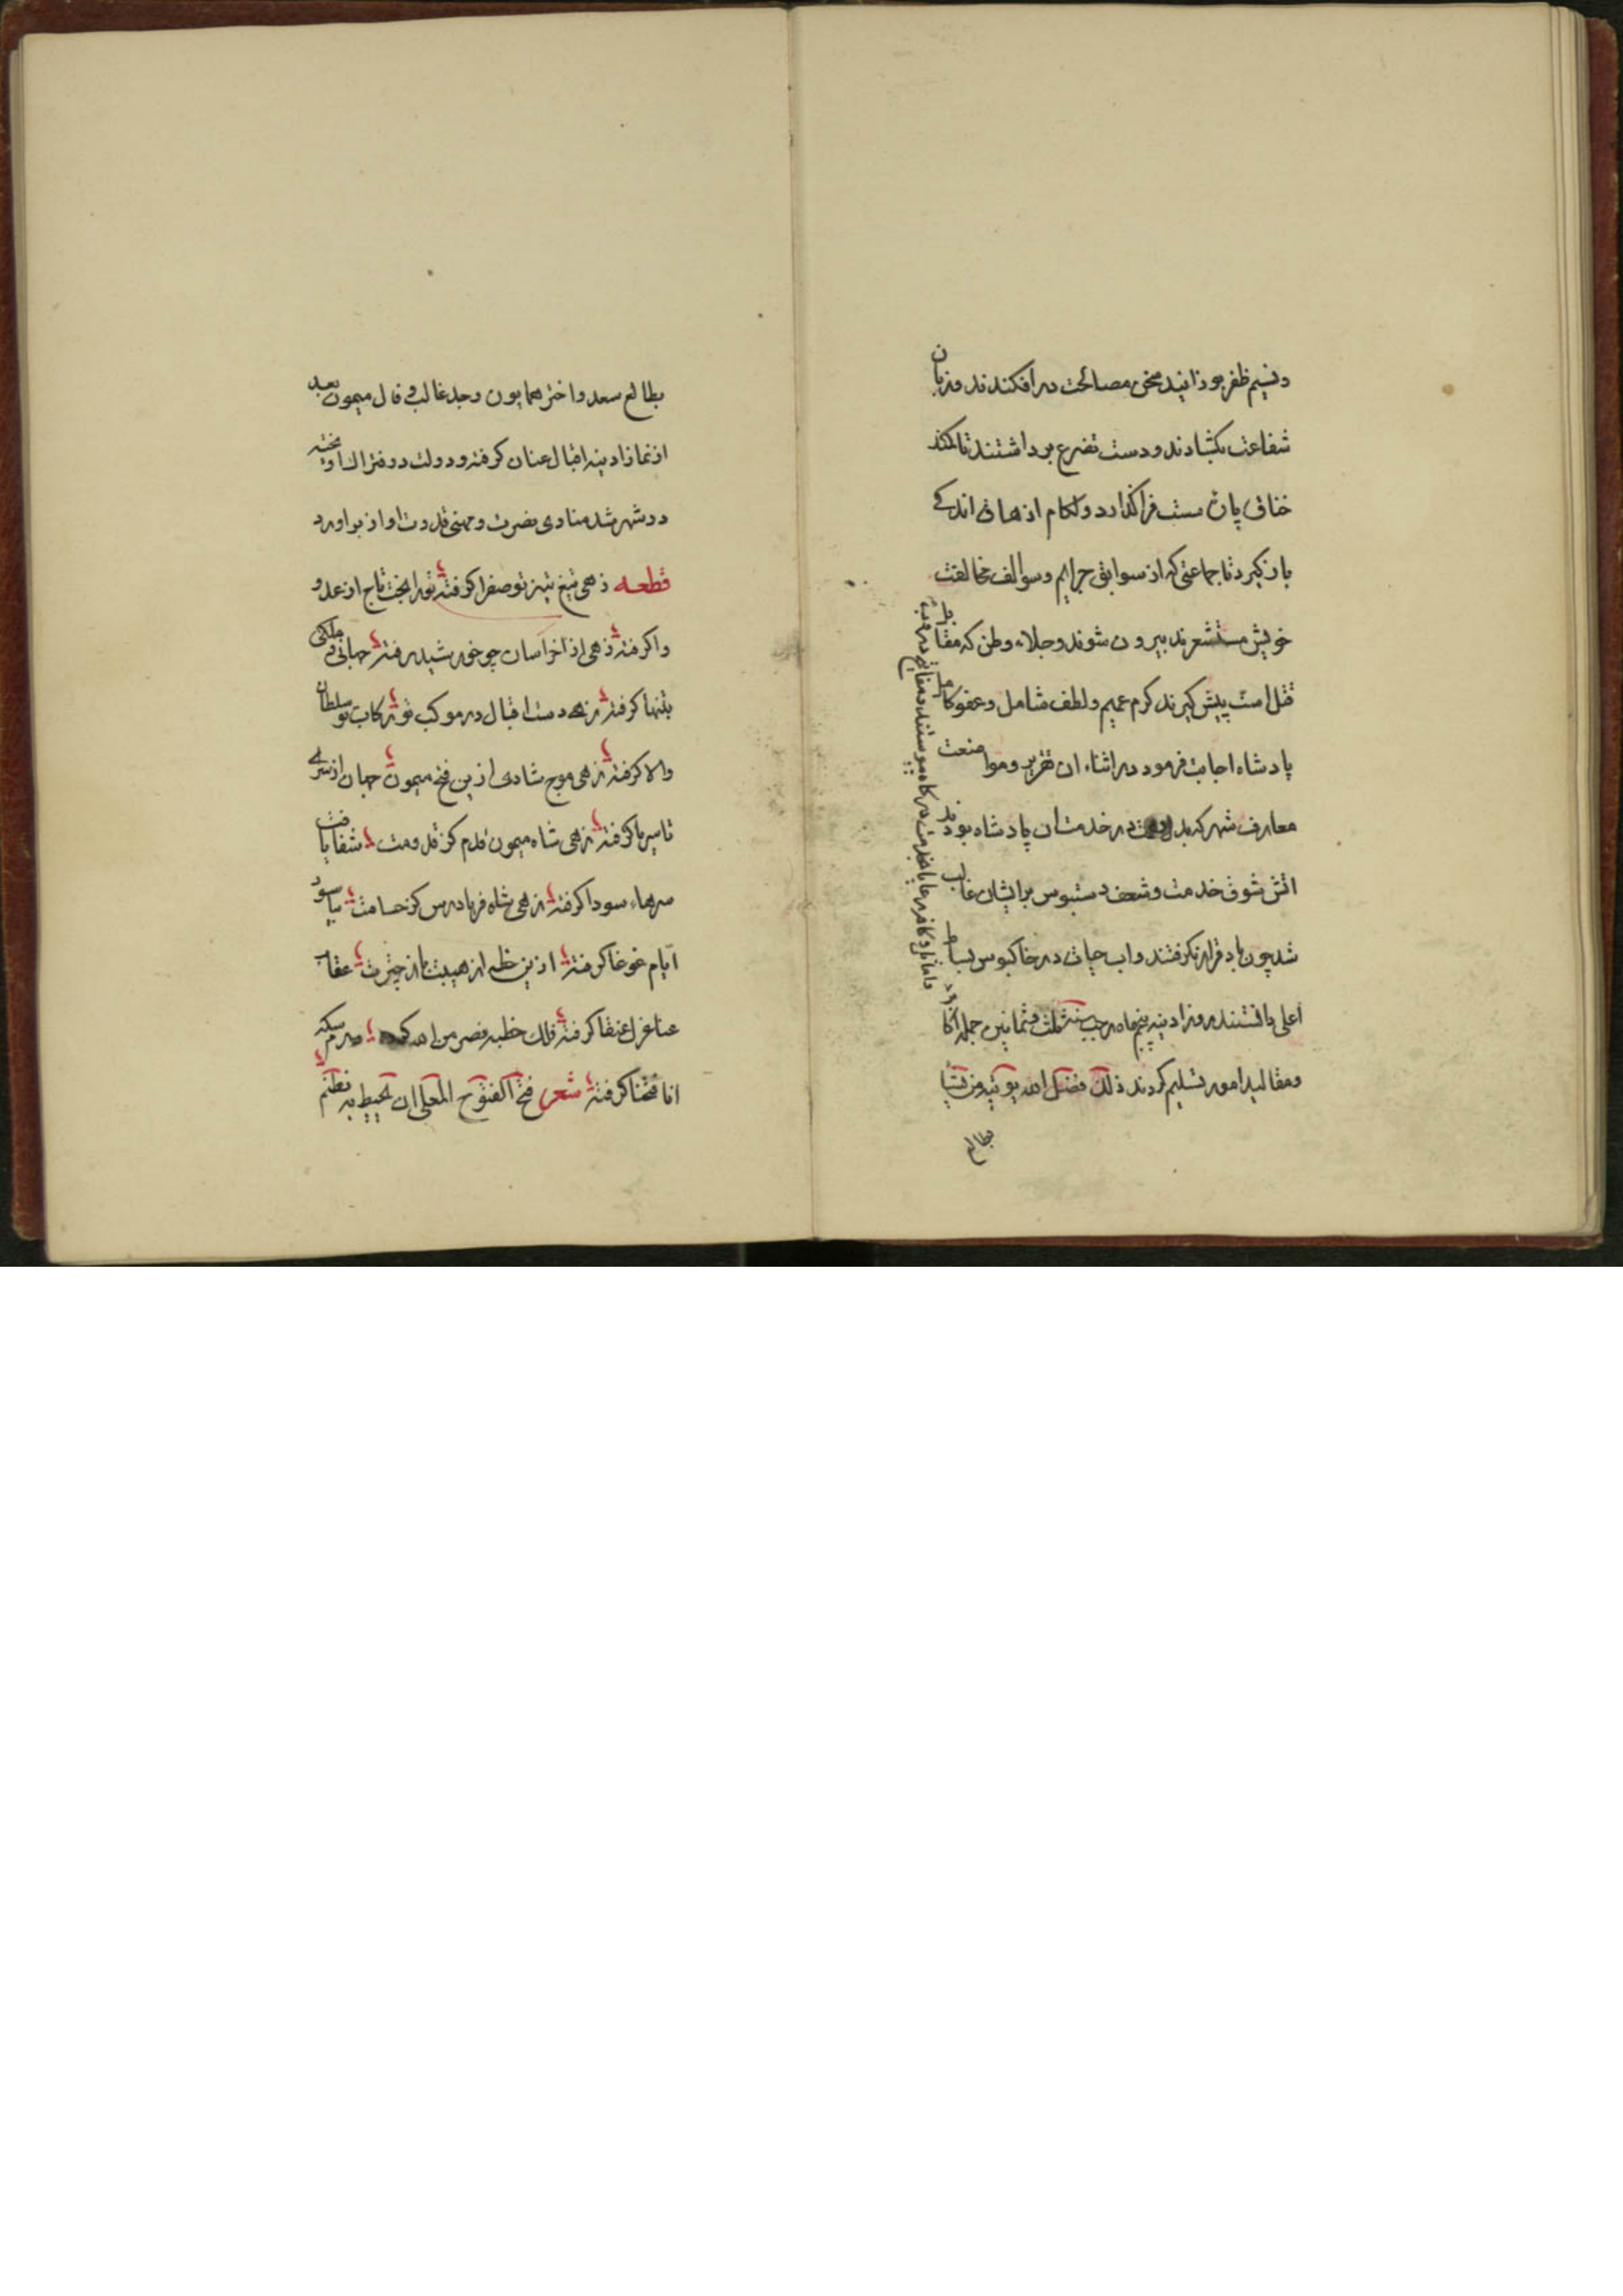 ونسیم ظفر بوزانید سخن مصالحت در افکندند و زبان
شفاعت بکشادند و دست تضرع برداشتند تا کمند
خناق پاره سست فرا گذارد و لکام ازهاق اندکی
باز کیرد تا جماعتی که از سوابق جرایم و سوالف مخالفت
خویش مستشعرند بیرون شوند و جلاء وطن که مقابل
قتل است پیش کیرند کرم عمیم و لطف شامل و عفو کامل
پادشاه اجابت فرمود در اثناء ان تقریر و مواضعت
معارف شهر که در خدمت ان پادشاه بودند
اتش شوق خدمت و شعف دستبوس بر ایشان غالب
شد چون باد قرار نکرفتند و اب حیات در خاکبوس بساط
اعلی یافتند روز ادینه پنجم ماه رجب سنه ثلث و ثمانین جمله اکابر
و مقالید امور تسلیم کردند ذلک فضل الله یؤتیه من یشا
بطالع
بطالع سعد و اختر همایون و جد غالب و فال میمون بعد
از نماز ادینه اقبال عنان کرفته و دولت در فتراک اویخته
در شهر شد منادی نصرت و منهی قدرت اواز براورد
قطعه زهی تیغ تیز تو صفرا کرفته تو را بخت تاج از عدو
واکرفته زهی از خراسان چو خورشید رفته جهانی و ملکی
بتنها کرفته زهی دست اقبال در موکب تو رکاب تو سلطان
والا کرفته زهی موج شادی ازین فتح میمون جهان از ثری
تا ثریا کرفته زهی شاه میمون قدم کز قدومت شفا یافت
سرهاء سودا کرفته زهی شاه فریادرس کز حسامت بیاسود
ایام غوغا کرفته ازین ظلم از هیبت باز چترت عقاب
عنا عزل عنقا کرفته فلک خطبه نصر من الله کرده درم سکه
انا فتحنا کرفته شعر فتح الفتوح المعلی ان یحیط به نظم